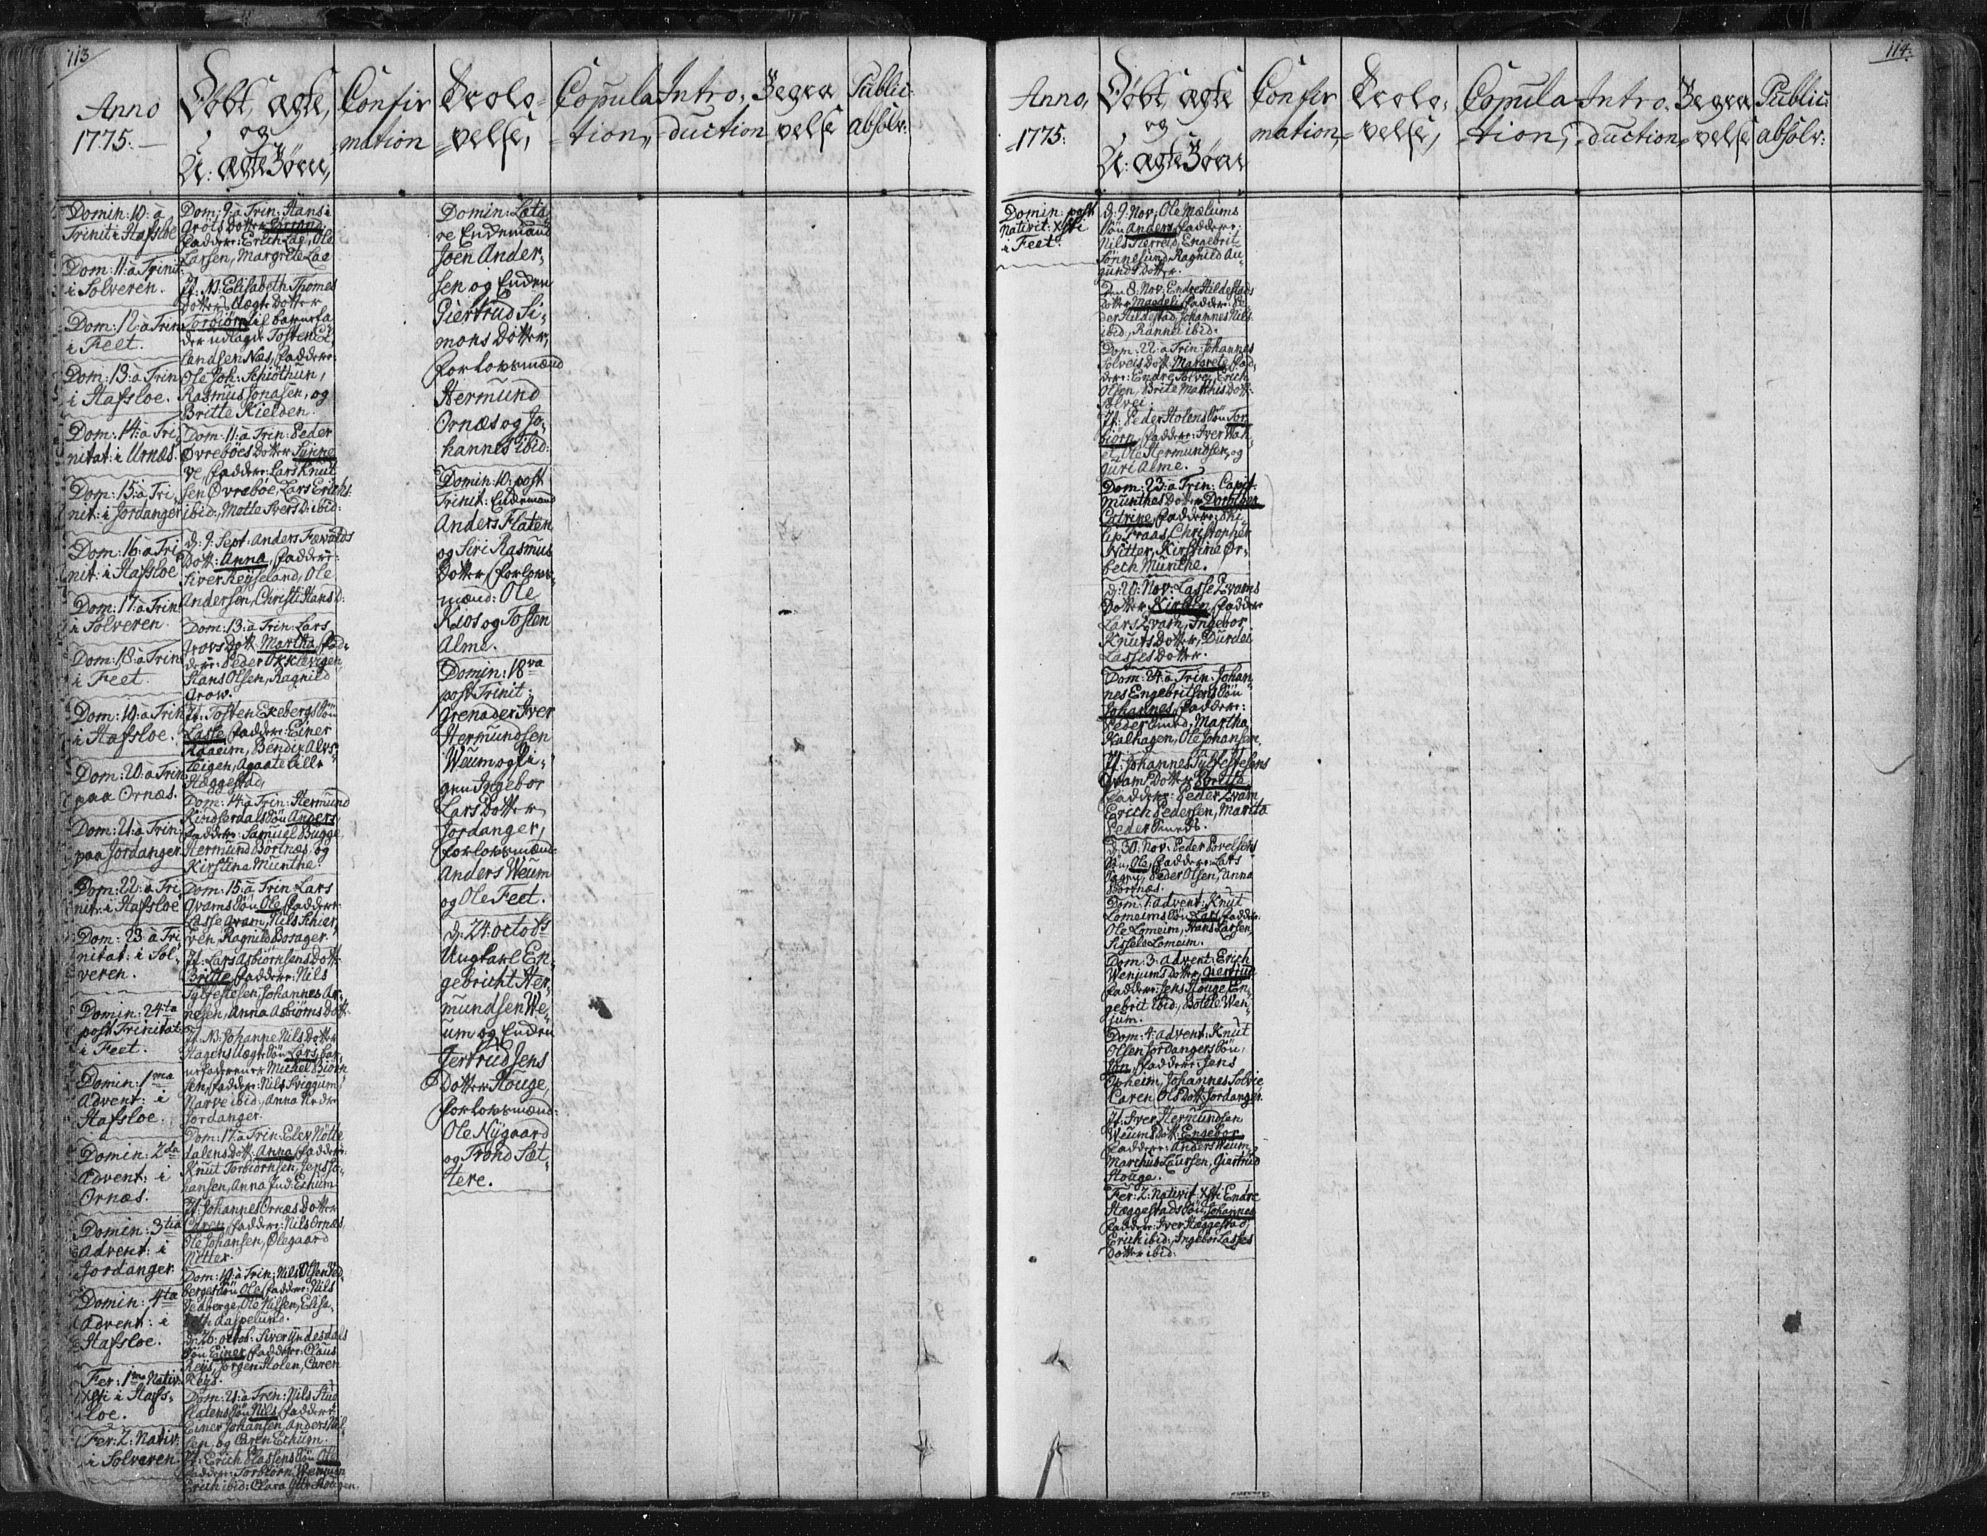 113
Anno
1775.
Døbt, ægte,
og
U: ægte Børn,
Confir
mation
Trolo-
velse,
Copula
tion,
Intro,
duction
Begra
velse
Public:
absolv:
Domin: 10: à
Trinit: i Hafsloe
Dom: 11: à Trinit:
i Solveren.
Dom: 12: à Trin:
i Feet.
Dom: 13: à Trin
i Hafsloe.
Dom: 14: à Tri
nitat: i Urnæs.
Dom: 15: à Tri,
nit: i Jordanger
Dom: 16: à Tri
nit: i Hafsloe
Dom: 17: à Trin:
i Solveren
Dom: 18: à Trin
i Feet
Dom: 19: à Trin
i Hafsloe.
Dom: 20: à Trin
paa Ornæs.
Dom: 21: à Trin:
paa Jordanger
Dom: 22: à Tri
nit: i Hafsloe
Dom: 23: à Tri
nitat: i Sol,
veren.
Domin: 24ta
post Trinitat
i Feet.
Domin: 1ma
Advent: i
Hafsloe.
Domin: 2da
Advent: i
Ornæs.
Domin: 3tia
Advent: i
Jordanger
Domin: 4ta
Advent: i
Hafsloe.
Fer: 1ma Nativ:
Xsti i Hafs,
loe.
Fer: 2: Nativ:
i Solveren
Dom: 9: à Trin: Hans
Dotter
Faddere: Erich Lae, Ole
Larsen, Margrete Lae
It: N: Elisabeth Thomes
Dotters Uægte Dotter
Torbiør til barnefa
der udlagde Tosten El
lendsen Næs, Faddere:
Ole Joh: Schiøthun,
Rasmus Jonasen, og
Britte Kielden.
Dom: 11: à Trin: Peder
Øvrebøes Dotter Sünne
ve Faddere: Lars Knut
sen Øvreboe, Lars Erichs:
ibid:, Motte Ivers D: ibid:
d: 9: Sept: Anders
Dott: Anna, Faddere:
Siver Reyseland, Ole
Andersen, Christi Hans D:
Dom: 13: à Trin: Lars
Dott: Martha, Fad,
dere: Peder
Hans Olsen, Ragnild
Grow.
It: Tosten Ekebergs Søn
Lasse, Faddere: Einer
Kaaeim, Bendix Alvs,
Teigen, Agaate Lill
Hæggestad,
Dom: 14: à Trin: Hermund
Kinserdals Søn Anders
Faddere: Samuel Bugge
Hermund Bortnæs, og
Kirstina Munthe
Dom: 15: à Trin: Lars
Qvams Søn Ole, Faddere
Lasse Qvam, Nils Schier,
ven, Ragnild Bosager
It: Lars Asbiørnsens Dott:
Britte, Faddere: Nils
Sylfestelen, Johannes Ar,
nesen, Anna Asbiørns Dott:
It: N: Johanne Nils Dotter
Hagens Uægte Søn Lars, Bar,
nefaderen er Michel Biørn
sen, Faddere: Nils Sviggum
Narve ibid:, Anna
Jordanger.
Dom: 17: à Trin: Elev Nøtte
dalens Dott: Anna, Faddere:
Knut Torbiørnsen, Jens Jo,
hansen, Anna Jud: Echum
It: Johannes Ornæs Dotter
Caren, Faddere: Nils Ornæs,
Ole Johansen, Ølegaard
Nitter.
Dom: 19: à Trin: Nils Olsen Ved
berges Søn Ole, Faddere: Nils
Vedberge, Ole Nilsen, Elisa,
beth Aaspelund.
d: 26: octob: Siver Yndesdals
Søn Einer, Faddere: Claus
Keys, Jørgen Holen, Caren
Keys.
Dom: 21: à Trin: Nils Hue
flatens Søn Nils, Faddere:
Einer Johansen, Anders Nil,
sen, og Caren Echum.
It: Erich Hassens Søn Ole
Faddere: Torbiørn Wenium
Erich ibid: Clara Hougen.
Domin: Læta,
re Endemand
Joen Ander,
sen og Enden
Giertrud Si,
mons Dotter,
Forlovsmænd
Hermund
Ornæs og Jo,
hannes ibid:
Domin: 10: post
Trinit: Endemand
Anders Flaten
og Siri Rasmus
Dotter, Forlovs,
mænd: Ole
Kios og Tosten
Alme.
Domin: 18va
post Trinit:
Grenader Iver
Hermundsen
Weum og Pi,
gen Ingebor
Lars Dotter
Jordanger,
Forlovsmænd
Anders Weum
og Ole Feet.
d: 24: octobs
Ungkarl En,
gebricht Her,
mundsen We,
um og Enden
Gertrud Jens
Dotter Houge,
Forlovsmænd:
Ole Nygaard
og Trond Sæt,
tere.
114.
Anno,
1775:
Døbt, ægte
og
U: ægte Børn
Confir
mation,
Trolo,
velse,
Copula
tion,
Intro,
duction
Begra
velse
Public:
absolv:
Domin: post
Nativit: Xsti
i Feet.
d: 9: Nov: Ole Mælums
Søn Anders, Faddere:
Nils Herreid, Engebrit
Sønnesund, Ragnild Au,
gunds Dotter.
Den 8: Nov: Endre Hildestads
Dotter Magdeli, Faddere: Pe,
der Hildestad, Johannes Nils:
ibid:, Ranni ibid:
Dom: 22: à Trin: Johannes
Solveis Dott: Margrete, Fad,
dere: Endre Solvei, Erich
Olsen, Brite Matthis Dott:
Solvei.
It: Peder Holens Søn Tor
biørn, Faddere: Iver
Ole Hermundsen, og
Guri Alme.
Dom: 23: à Trin: Capit:
Munthes Dotter Dorothea
Catrine, Faddere: Phi,
lip Fraas, Christopher
Nitter, Kirstine Ør,
bech Munthe.
d: 20: Nov: Lasse Qvams
Dotter Kirsten, Faddere
Lars Qvam, Ingebor
Knuts Dotter, Durdei
Lasses Dotter.
Dom: 24: à Trin: Johan
nes Engebritsens Søn
Johannes, Faddere:
Peder Lund, Martha
Kalhagen, Ole Johansen.
It: Johannes Sylfestesens
Qvams Dotter Britte
Faddere: Peder Qvam
Erich Pedersen, Marita
Peder
d: 30: Nov: Peder Povelsens
Søn, Ole, Faddere: Lars
Peder Olsen, Anna
Bortnæs.
Dom: 1: Advent: Knut
Lomeims Søn Lars, Fadder:
Ole Lomeim, Hans Lassen,
Sissele Lomeim.
Dom: 3: Advent: Erich
Wenjums Dotter, Giertrud
Faddere: Jens Houge, En,
gebrit ibid:, Botele Wen,
jum.
Dom: 4: Advent: Knut
Olsen Jordangers Søn,
Jon, Faddere: Jens
Opheim, Johannes Solvie
Caren Ols Dott: Jordanger
It: Iver Hermundsen
Weums Dott: Engebor
Faddere: Anders Weum,
Marchus Laursen, Giertrud
Houge.
Fer: 2: Nativit: Xsti Endre
Hæggestads Søn, Johannes
Faddere: Iver Hæggestad,
Erich ibid:, Ingebor Lasses
Dotter ibid: